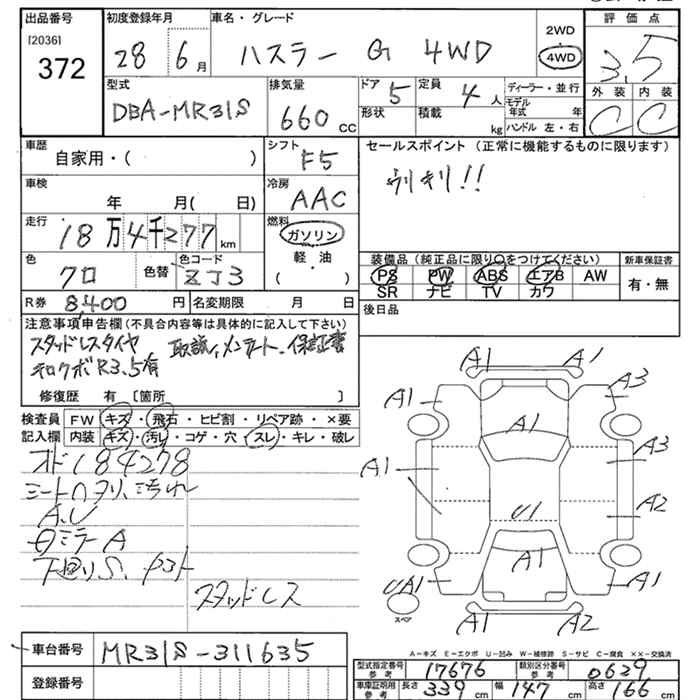 出品番号
[2036]
372
初度登録年月
28 6月
車名・グレード
ハスラー G 4WD
2WD
4WD
評価点
3.5
外装 内装
C C
型式
DBA-MR31S
排気量
660 CC
ドア 5
形状
定員 4 人
積載 kg
ディーラー・並行
モデル年式 年
ハンドル 左・右
車歴
自家用・( )
シフト
F5
セールスポイント (正常に機能するものに限ります)
ウリキリ!!
車検
年 月( 日)
冷房
AAC
走行
18万4千277km
燃料
ガソリン
軽油
・
( )
色
クロ
色替
色コード
ZJ3
装備品(純正品に限り○をつけてください)
PS PW ABS エアB AW
SR ナビ TV カワ
新車保証書
有・無
R券 8,400 円
名変期限 月 日
後日品
注意事項申告欄(不具合内容等は具体的に記入して下さい)
スタッドレスタイヤ 取説、メンテノート、保証書
キロクボR3.5有
修復歴 有 [箇所 ]
検査員記入欄
FW キズ・飛石・ヒビ割・リペア跡・×要
内装 キズ・汚れ・コゲ・穴・スレ・キレ・破レ
オド184278
シートヘタリ、汚れ
A.U
ミラーA
下回りS.
スタッドレス
A1 A1
A1 A3
A1
A1 A3
U1 A2
A1
UA1 A1
スペア
A1 A2
A-キズ E-エクボ U-凹み W-補修跡 S-サビ C-腐食 ××-交換済
車台番号
MR31S-311635
登録番号
型式指定番号 参考 17676
類別区分番号 参考 0629
車庫証明用 参考 長さ 339 cm 幅 147 cm 高さ 166 cm